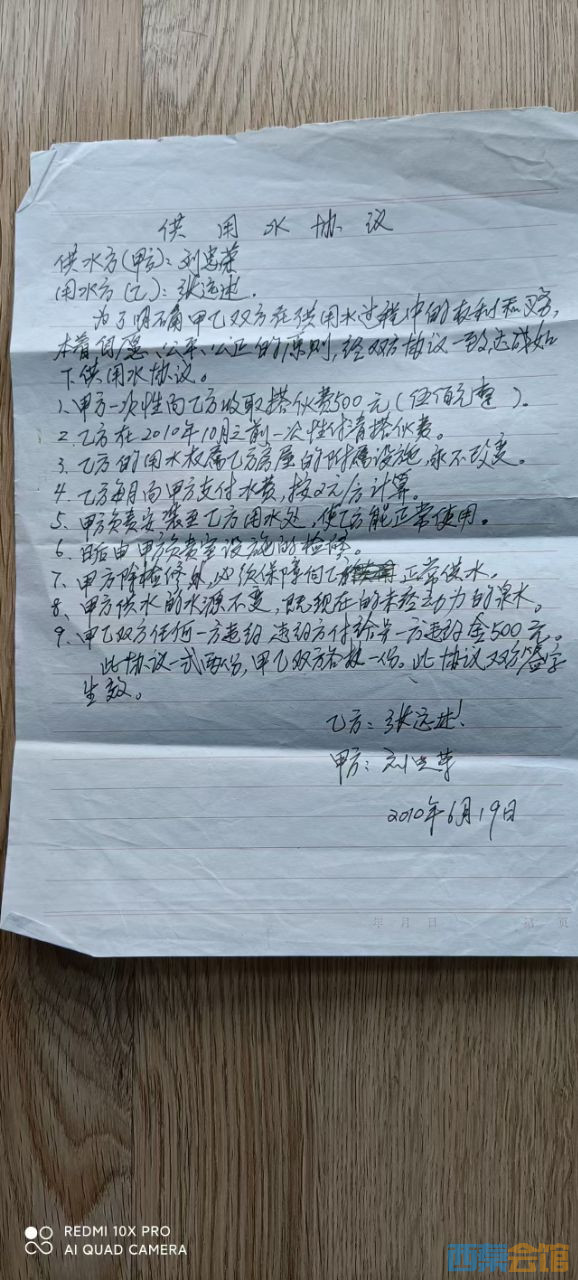 供用水协议
供水方(甲方)：刘忠荣
用水方(乙)：张远述.
为了明确甲乙双方在供用水过程中的权利和义务,
本着自愿、公平、公正的原则,经双方协议一致,达成如
下供用水协议。
1、甲方一次性向乙方收取搭伙费500元(伍佰元整)。
2、乙方在2010年10月之前一次性付清搭伙费。
3、乙方的用水权属乙方房屋的附属设施,永不改变。
4、乙方每月向甲方支付水费,按2元/方计算。
5、甲方负责安装至乙方用水处,使乙方能正常使用。
6、日后由甲方负责室设施的检修。
7、甲方除检修外,必须保障向乙方正常供水。
8、甲方供水的水源不变,既现在的未经动力的泉水。
9、甲乙双方任何一方违约,违约方付给另一方违约金500元。
此协议一式两份,甲乙双方各执一份。此协议双方签字
生效。
乙方：张远述
甲方：刘忠荣
2010年6月19日
年 月 日 第 页
REDMI 10X PRO
AI QUAD CAMERA
西祠会馆